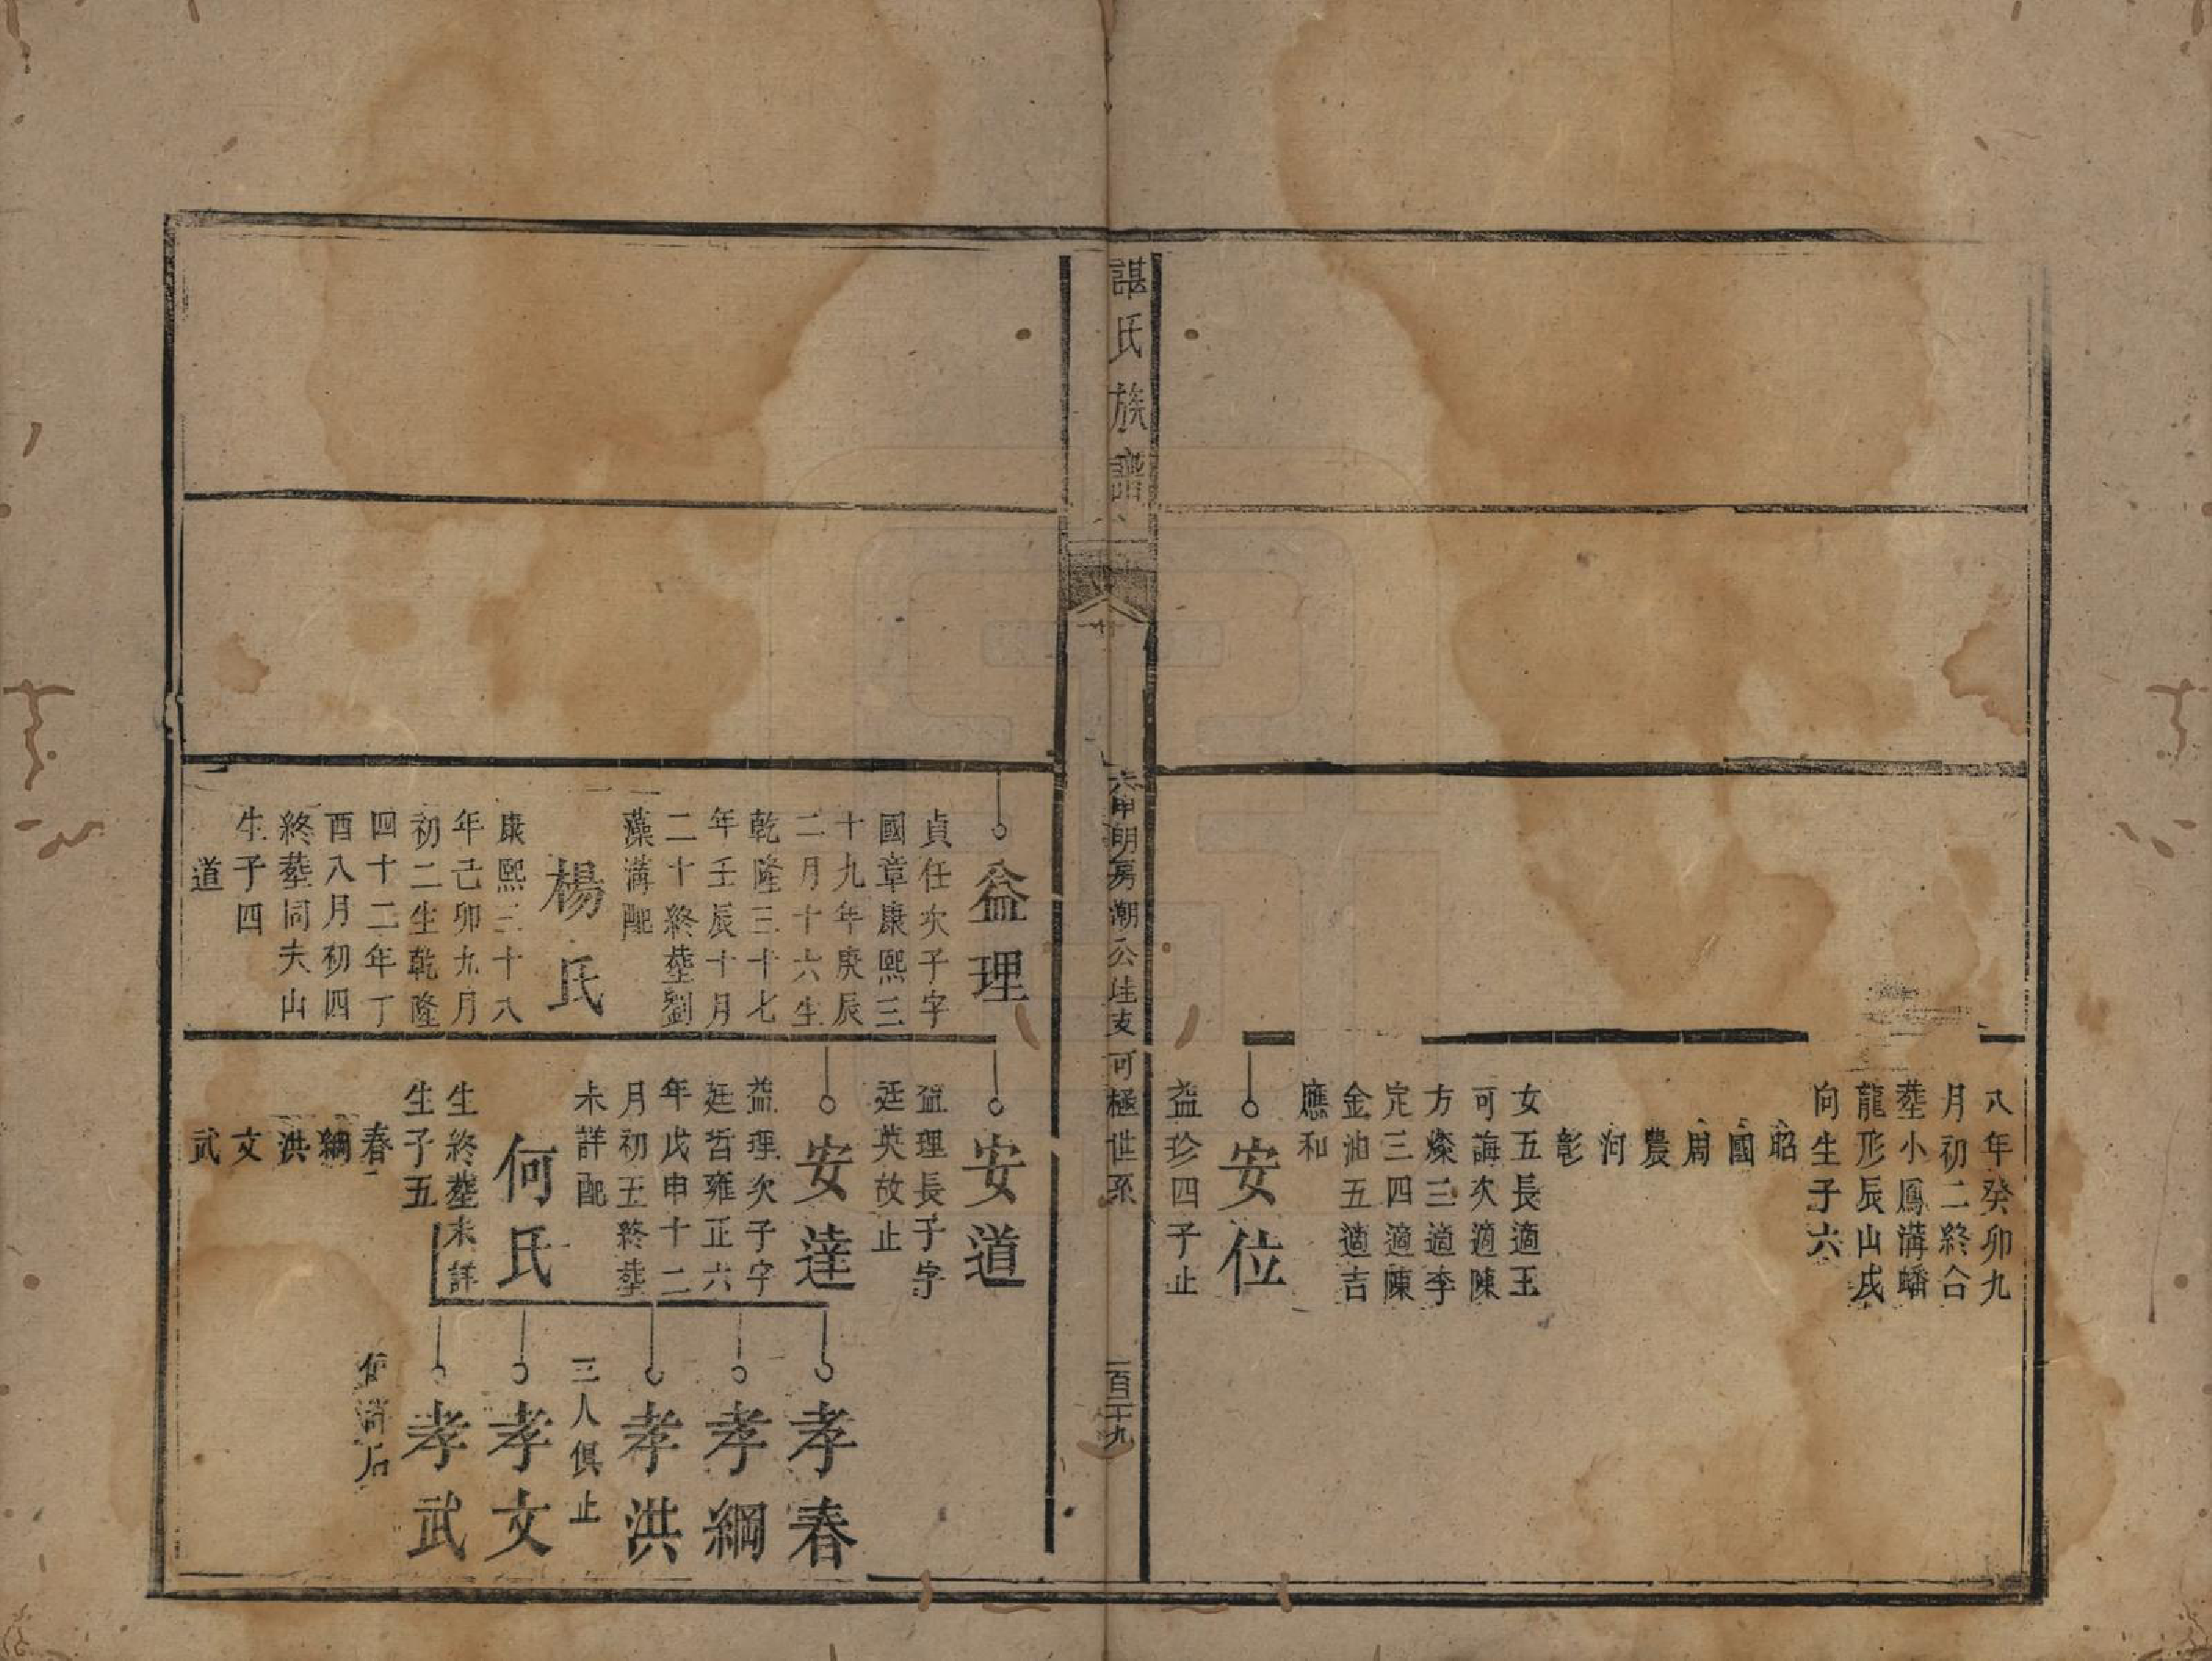 八年癸卯九
月初二終合
塟小鳳溝蟠
龍形辰山戌
向生子六
昭
國
周
農
河
彰
女五長適王
可誨次適陳
方燦三適李
定三四適陳
金油五適吉
應和
安位
益珍四子止
諶氏族譜
六甲明房潮公
支可極世系
一百二十九
益理
貞任次子字
國章康熙三
十九年庚辰
二月十六生
乾隆三十七
年壬辰十月
二十終塟劉
藻溝配
楊氏
康熙三十八
年己卯九月
初二生乾隆
四十二年丁
酉八月初四
終塟同夫山
生子四
道
安道
益理長子字
廷英故止
安達
益理次子字
廷哲雍正六
年戊申十二
月初五終塟
未詳配
何氏
生終塟未詳
生子五
春
綱
洪
文
武
孝春
孝綱
孝洪
三人俱止
孝文
孝武